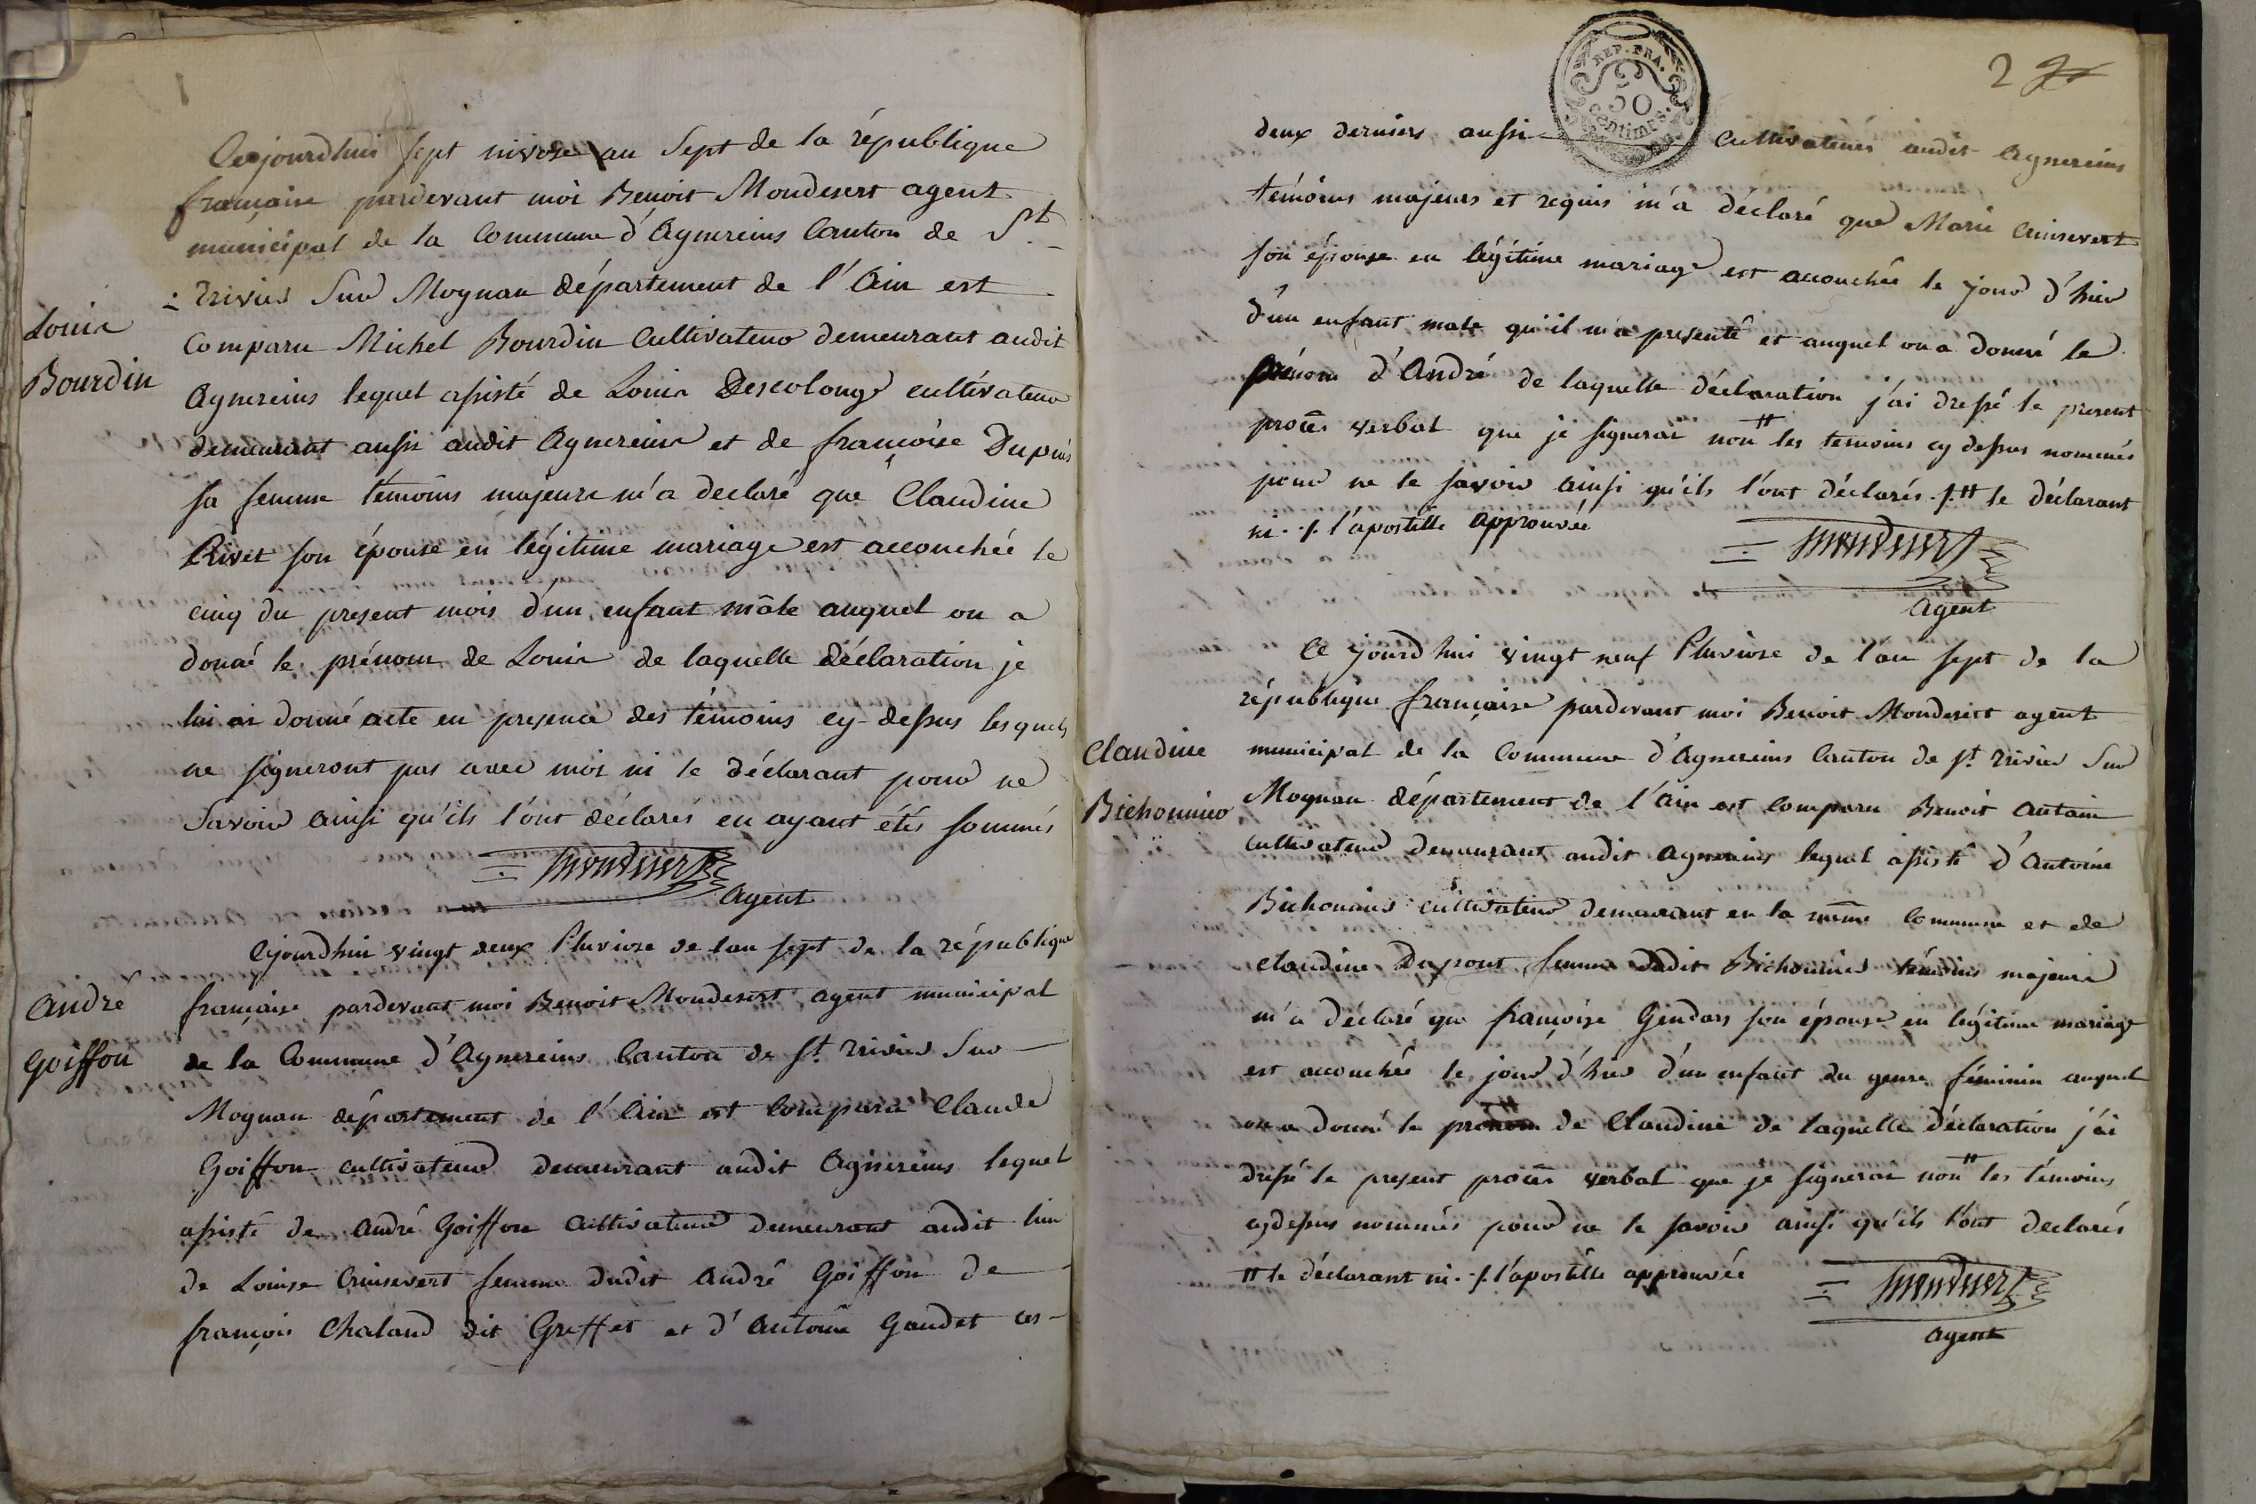 Louis
Bourdin
Cejourdhui sept nivose an sept de la république
française pardevant moi Benoit Mondesert agent
municipal de la Commune d'Agnereins Canton de St
Trivier Sur Mognan département de l'Ain est
Comparu Michel Bourdin Cultivateur demeurant audit
Agnereins lequel assisté de Louis Descolonge cultivateur
demeurant aussi audit Agnereins et de françoise Dupuis
sa femme témoins majeurs m'a declaré que Claudine
Rivet son épouse en légitime mariage est accouchée le
cinq du present mois d'un enfant mâle auquel on a
donné le prénom de Louis de laquelle déclaration je
lui ai donné acte en presence des témoins cy-dessus lesquels
ne signeront pas avec moi ni le déclarant pour ne
Savoir ainsi qu'ils l'ont déclarés en ayant étés sommés
Mondesert
Agent
andré
Goiffon
Cejourdhui vingt deux Pluviose de lan sept de la république
française pardevant moi Benoit Mondesert agent municipal
de la Commune d'Agnereins Canton de St. Trivier Sur
Mognan département de l'Ain est Comparu Claude
Goiffon cultivateur demeurant audit Agnereins lequel
assisté de andré Goiffon Cultivateur demeurant audit lieu
de Louise Cruisevert femme dudit André Goiffon de
françois Chaland dit Greffet et d'Antoine Gaudet ces
2
REP. FRA.
50
Centimes.
deux derniers aussi Cultivateurs audit Agnereins
témoins majeurs et requis m'a déclaré que Marie Cruisevert
son épouse en légitime mariage est accouchée le jour d'hier
d'un enfant male qu'il m'a presenté et auquel on a donné le
prénom d'André de laquelle déclaration j'ai dressé le present
procès verbal que je signerai non # les temoins cy dessus nommés
pour ne le savoir ainsi qu'ils l'ont déclarés ./. # le déclarant
ni ./. l'apostille approuvée
Mondesert
Agent
Claudine
Bichonnier
Ce jourd'hui vingt neuf Pluviose de l'an sept de la
république française pardevant moi Benoit Mondesert agent
municipal de la Commune d'Agnereins Canton de St. Trivier Sur
Mognan département de l'Ain est Comparu Benoit Antain
cultivateur demeurant audit Agnereins lequel assisté d'Antoine
Bichonnier cultivateur demeurant en la même Commune et de
Claudine Dupont femme dudit Bichonnier témoins majeurs
m'a déclaré que françoise Gendars son épouse en légitime mariage
est accouchée le jour d'hier d'un enfant du genre féminin auquel
on a donné le prénom de Claudine de laquelle déclaration j'ai
dressé le present procès verbal que je signerai non # les témoins
cy dessus nommés pour ne le savoir ainsi qu'ils l'ont declarés
# le déclarant ni ./. l'apostille approuvée
Mondesert
Agent